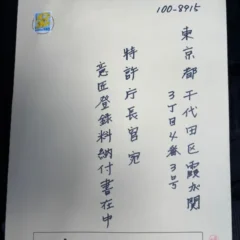 100-8915
東京都千代田区霞が関
3丁目4番3号
特許庁長官宛
意匠登録料納付書在中